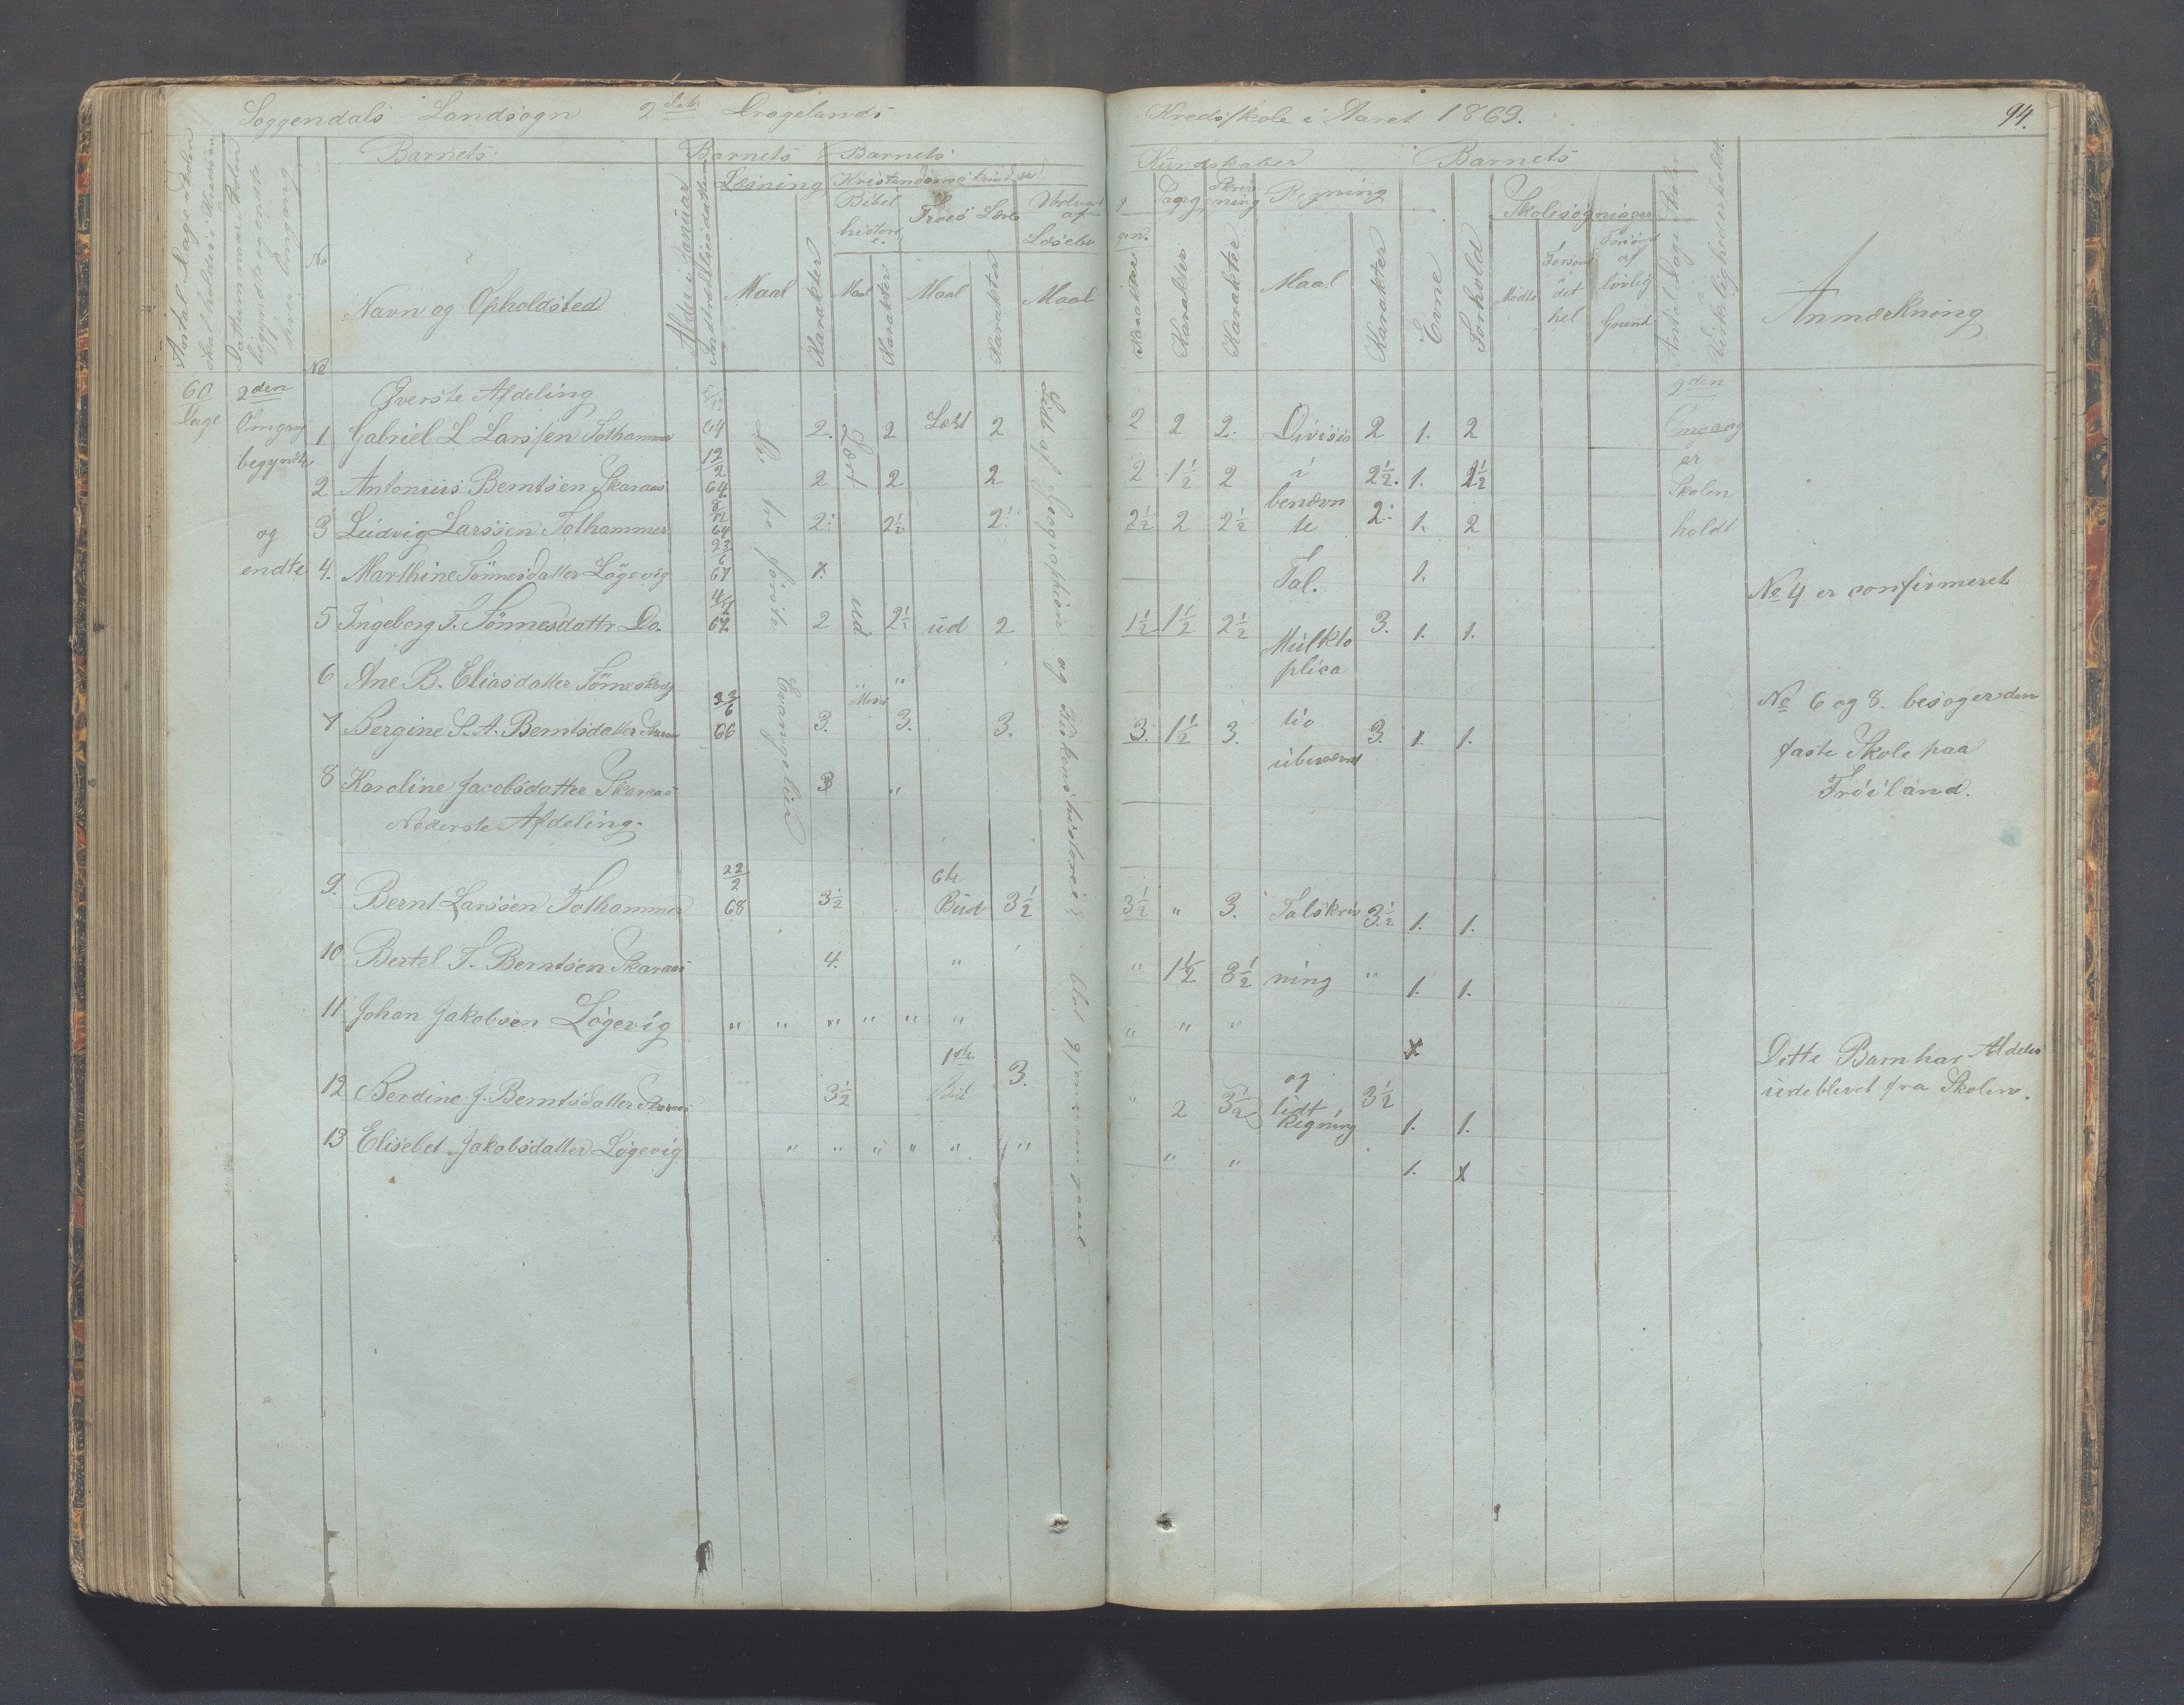 Soggendals Landsogn 2det Dragelands Kredsskole i Aaret 1869. 94.
Antal Dage Skolen skal holdes i Kredsen
Datum naar Skolen begyndte og endte hver Omgang
No
Barnets
Navn og Opholdssted
Barnets
Alder i Januar
Indtrædelsesdatum
Læsning
Maal
Karakter
Barnets
Kristendomskundskab
Bibel historie
Maal
Karakter
Troes Lære
Maal
Karakter
Udvalg af Læsebo
Maal
Kundskaber
gen.
Karakter
Sang
Karakter
Skriv ning
Karakter
Regning
Maal
Karakter
Barnets
Evne
Forhold
Skolesøgningen
Mødte
Forsømt det hel
Forsømt af lovlig Grund
Antal Dage Skolen i Virkeligheden holdt.
Anmærkning
60 Dage
2den Omgang begyndte og endte
Øverste Afdeling
2den Omgang er Skolen holdt
1 Gabriel L Larssen Tothammer 64 2. 2 Lært 2 2 2 2. Division 2 1. 2
2 Antonius Berntsen Skaraas 12/2 64 2 2 2 2 1½ 2 i benævn 2½. 1. 1½
3 Ludvig Larssen Tothammer 64 2. 2½ 2. 2½ 2 2½ te 2. 1. 2
4. Marthine Tönnesdatter Lögevig 23/6 67 1. Tal. 1. No 4 er confirmeret
5 Ingeborg T. Tönnesdattr Do. 67. 2 2½ ud 2 1½ 1½ 2½ Multip 3. 1. 1.
plica
6 Ane B. Eliasdatter " "
No 6 og 8. besøger den
7 Bergine S. A. Berntsdatter Skaraas 23/6 66 3. Mosis 3. 3. 3. 1½ 3. tio 3. 1. 1.
ubenævnt
faste Skole paa
8 Karoline Jacobsdatter Skaraas 3 "
Fröiland.
Nederste Afdeling.
9. Bernt Larssen Tothammer 22/2 68 3½ 6te Bud 3½ 3½ " 3. Talskriv 3½ 1. 1.
10 Bertel T. Berntsen Skaraas 4. " " 1½ 3½ ning " 1. 1.
11 Johan Jakobsen Lögevig " " " " " " " " " x
Dette Barn har Aldeles
12 Berdine J. Berntsdatter Skaraas 3½ 1ste Bud 3. " 2 3½ og lidt Regning 3½ 1. 1.
udeblevet fra Skolen.
13 Elisebet Jakobsdatter Lögevig " " " " " " " " 1. x
De tre første Evangelier
Lært ud
Lidt af Geografien og Kirkens historie blot gjennemgaaet